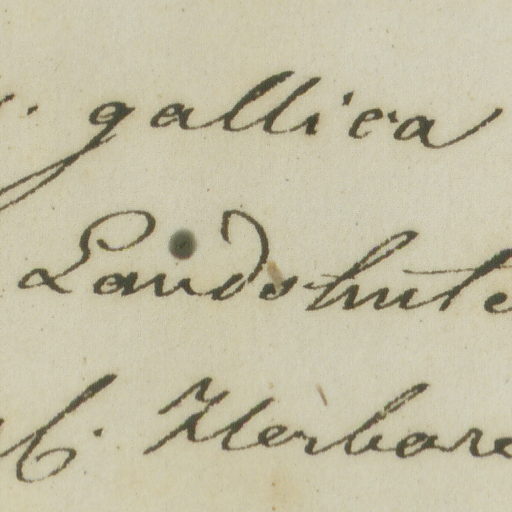 gallica
Landshute
Herbare